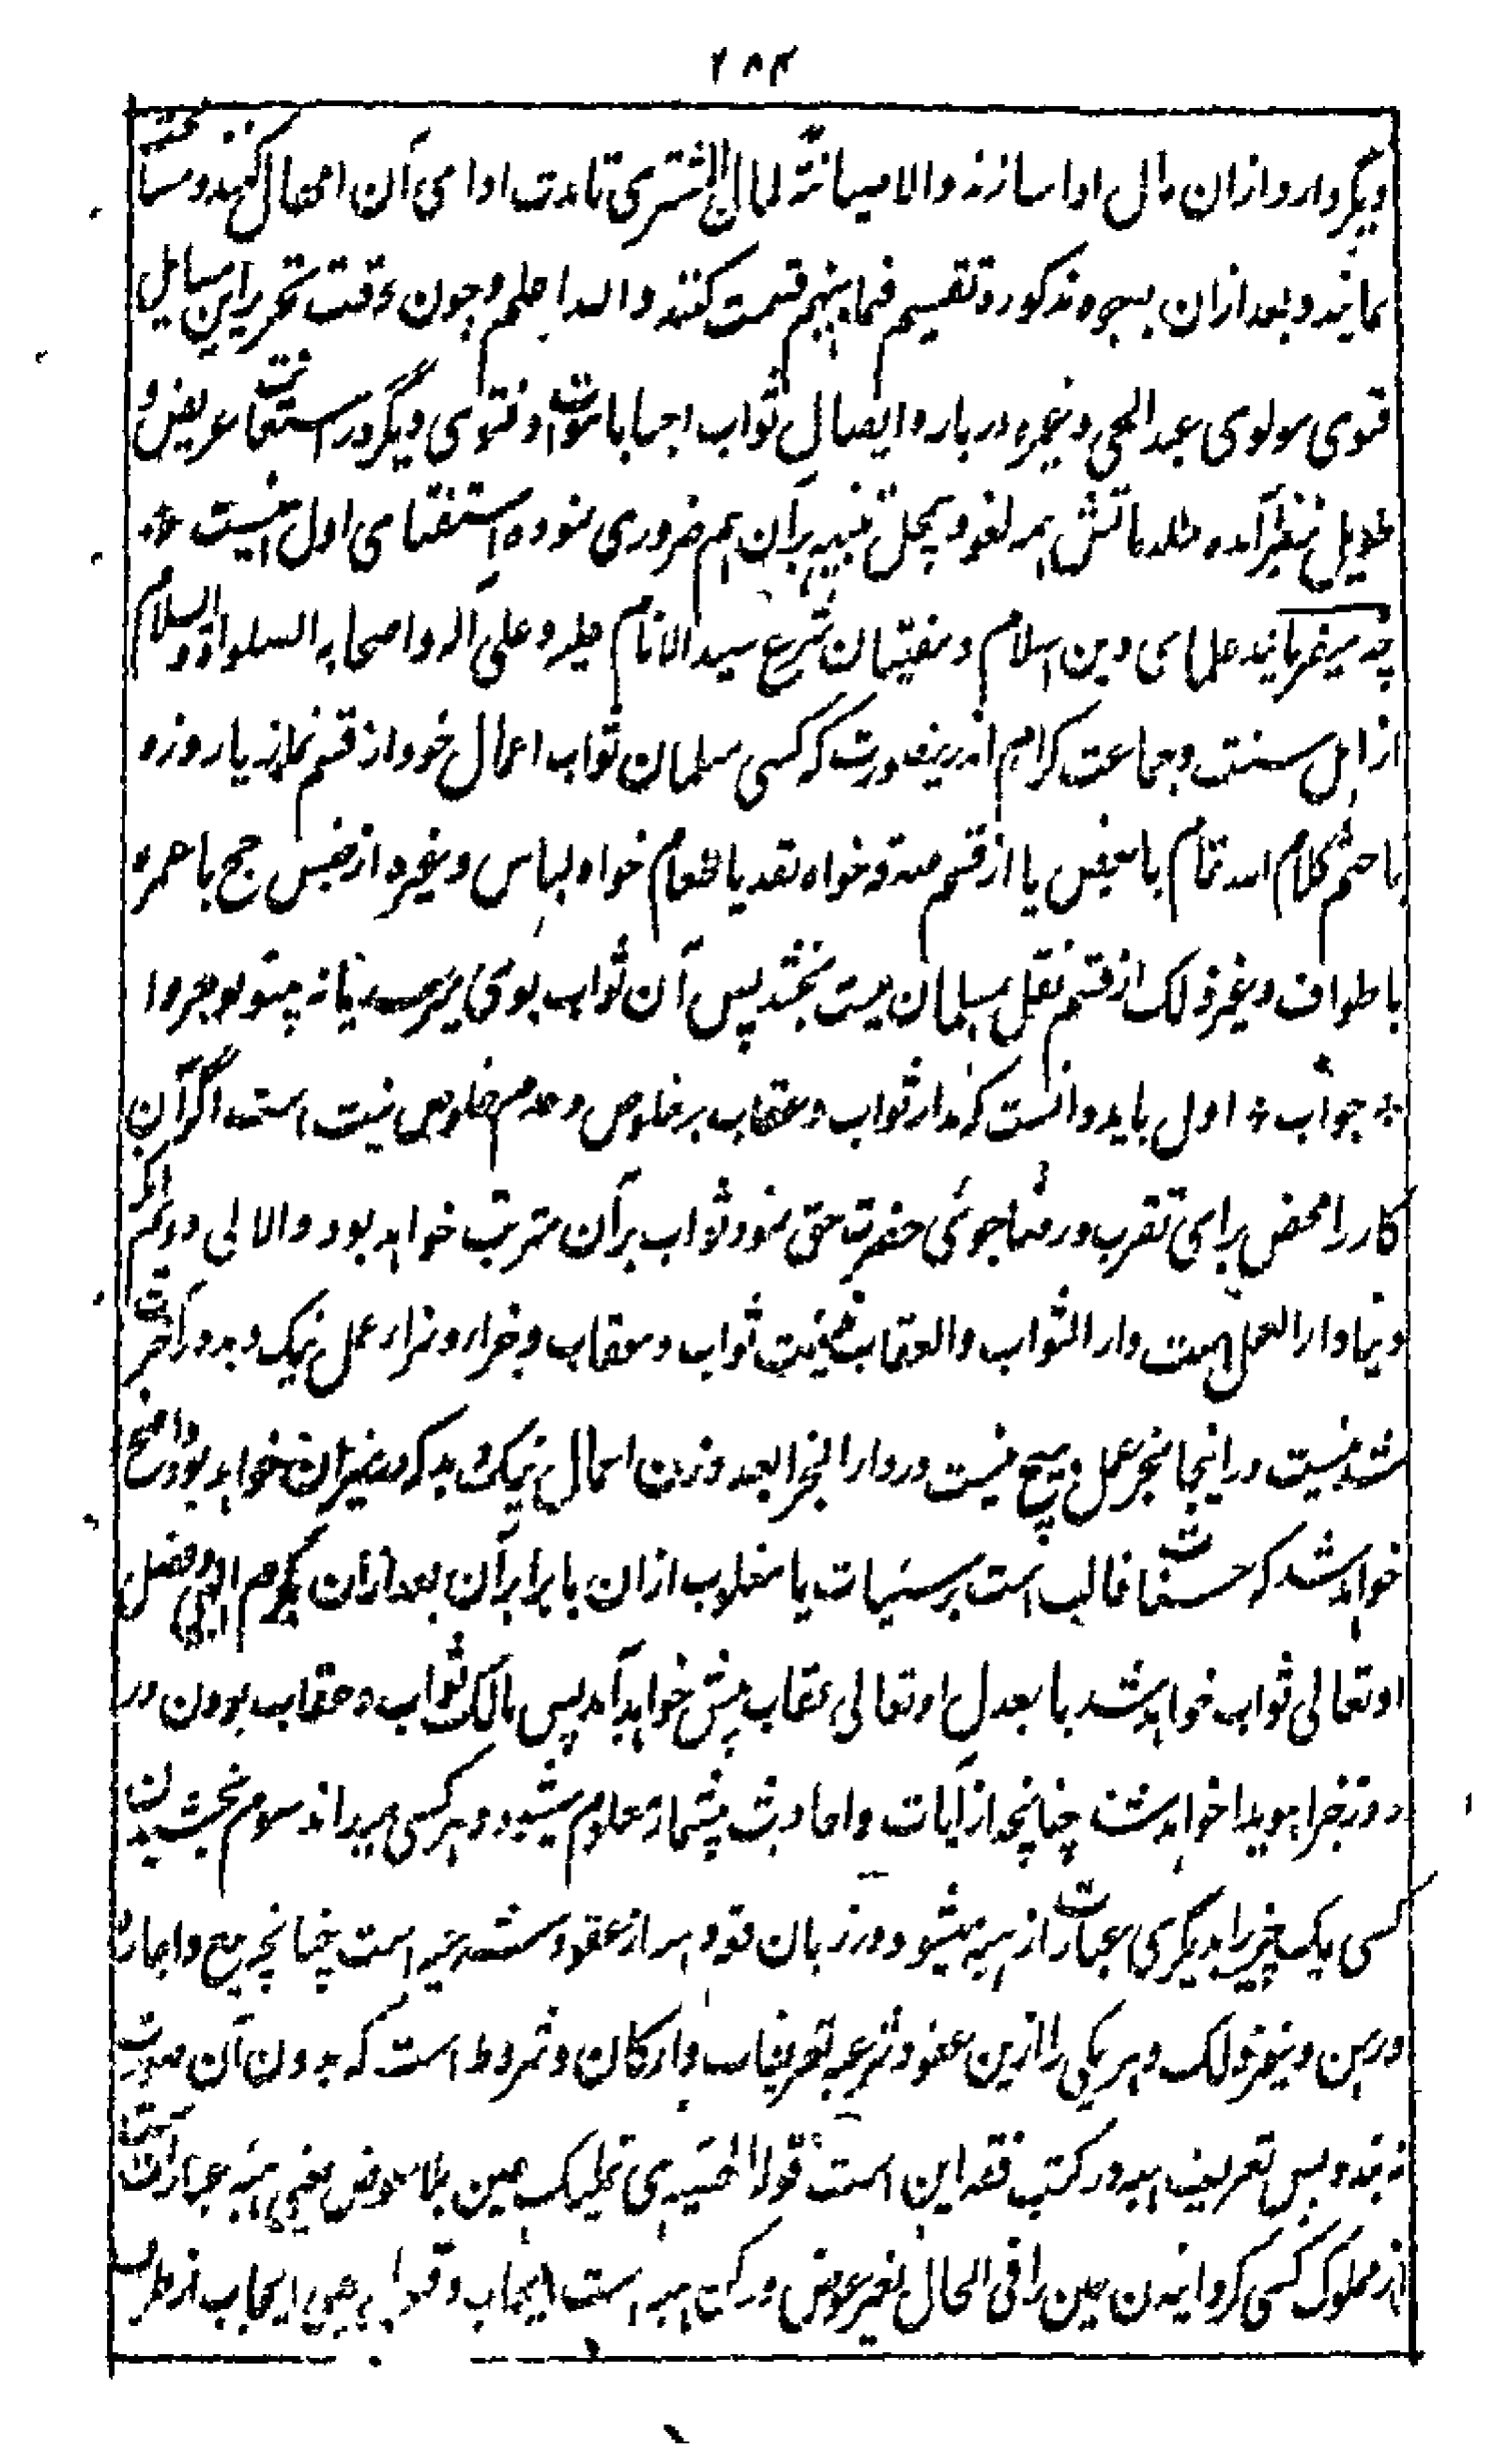 ۲۸۴
دیگر دارد ازان مال ادا سازند والا صیانةً لمال المشتری تا مدت ادای آن امهال کنند و مستأخر
نمایند و بعد ازان بوجوه مذکوره تقسیم فیما بینهم قسمت کنند والله اعلم و چون وقت تحریر این مسایل
فتوی مولوی عبد الحی وغیره درباره ایصال ثواب احیا باموات و فتوی دیگر در استعانت عریض و
طویل بنظر آمده کلماتش همه لغو و بیمحل تنبیه بر آن هم ضروری نموده استفتای اول اینست *
چه میفرمایند علمای دین اسلام و مفتیان شرع سید الانام علیه و علی آله و اصحابه الصلواة والسلام
از اهل سنت و جماعت کرام اندرینصورت که کسی مسلمان ثواب اعمال خود از قسم نماز یا روزه
یا ختم کلام الله تمام یا بعض یا از قسم صدقه خواه نقد یا طعام خواه لباس وغیره از جنس حج یا عمره
یا طواف وغیر ذلک از قسم نفل بمسلمان میت بخشد پس آن ثواب بوی میرسد یا نه بینوا توجروا
* جواب * اول باید دانست که مدار ثواب و عقاب بر خلوص و عدم خلوص نیت است اگر آن
کار را محض برای تقرب و رضاجوئی حضرت حق نمود ثواب بر آن مترتب خواهد بود والا لی دوئم آنکه
دنیا دار العمل است دار الثواب والعقاب نیست ثواب و عقاب و جزا و سزاء عمل نیک و بد در آخرت
شدنیست در اینجا بجز عمل هیچ نیست و در دار الجزا بعد وزن اعمال نیک و بد که در میزان خواهد بود واضح
خواهد شد که حسنات غالب است بر سیئات یا مغلوب ازان یا برابر آن بعد ازان بکرم الهی و فضل
او تعالی ثواب خواهد شد یا بعدل او تعالی عقاب پیش خواهد آمد پس مالک ثواب و عقاب بودن در
روز جزا هویدا خواهد شد چنانچه از آیات و احادیث بیشمار معلوم میشود و هر کسی میداند سوم بخشیدن
کسی یک چیز را بدیگری عبارت از هبه میشود و در زبان فقه هبه از عقود شرعیه است چنانچه بیع و اجاره
و رهن وغیر ذلک و هر یکی را ازین عقود شرعیه تعریفات و ارکان و شروط است که بدون آن صورت
نه بندد پس تعریف هبه در کتب فقه این است قولهٔ الهبه هی تملیک عین بلا عوض یعنی هبه عبارتست
از مملوک کسی گردانیدن عین را فی الحال بغیر عوض و رکن هبه است ایجاب و قبول یعنی ایجاب از طرف